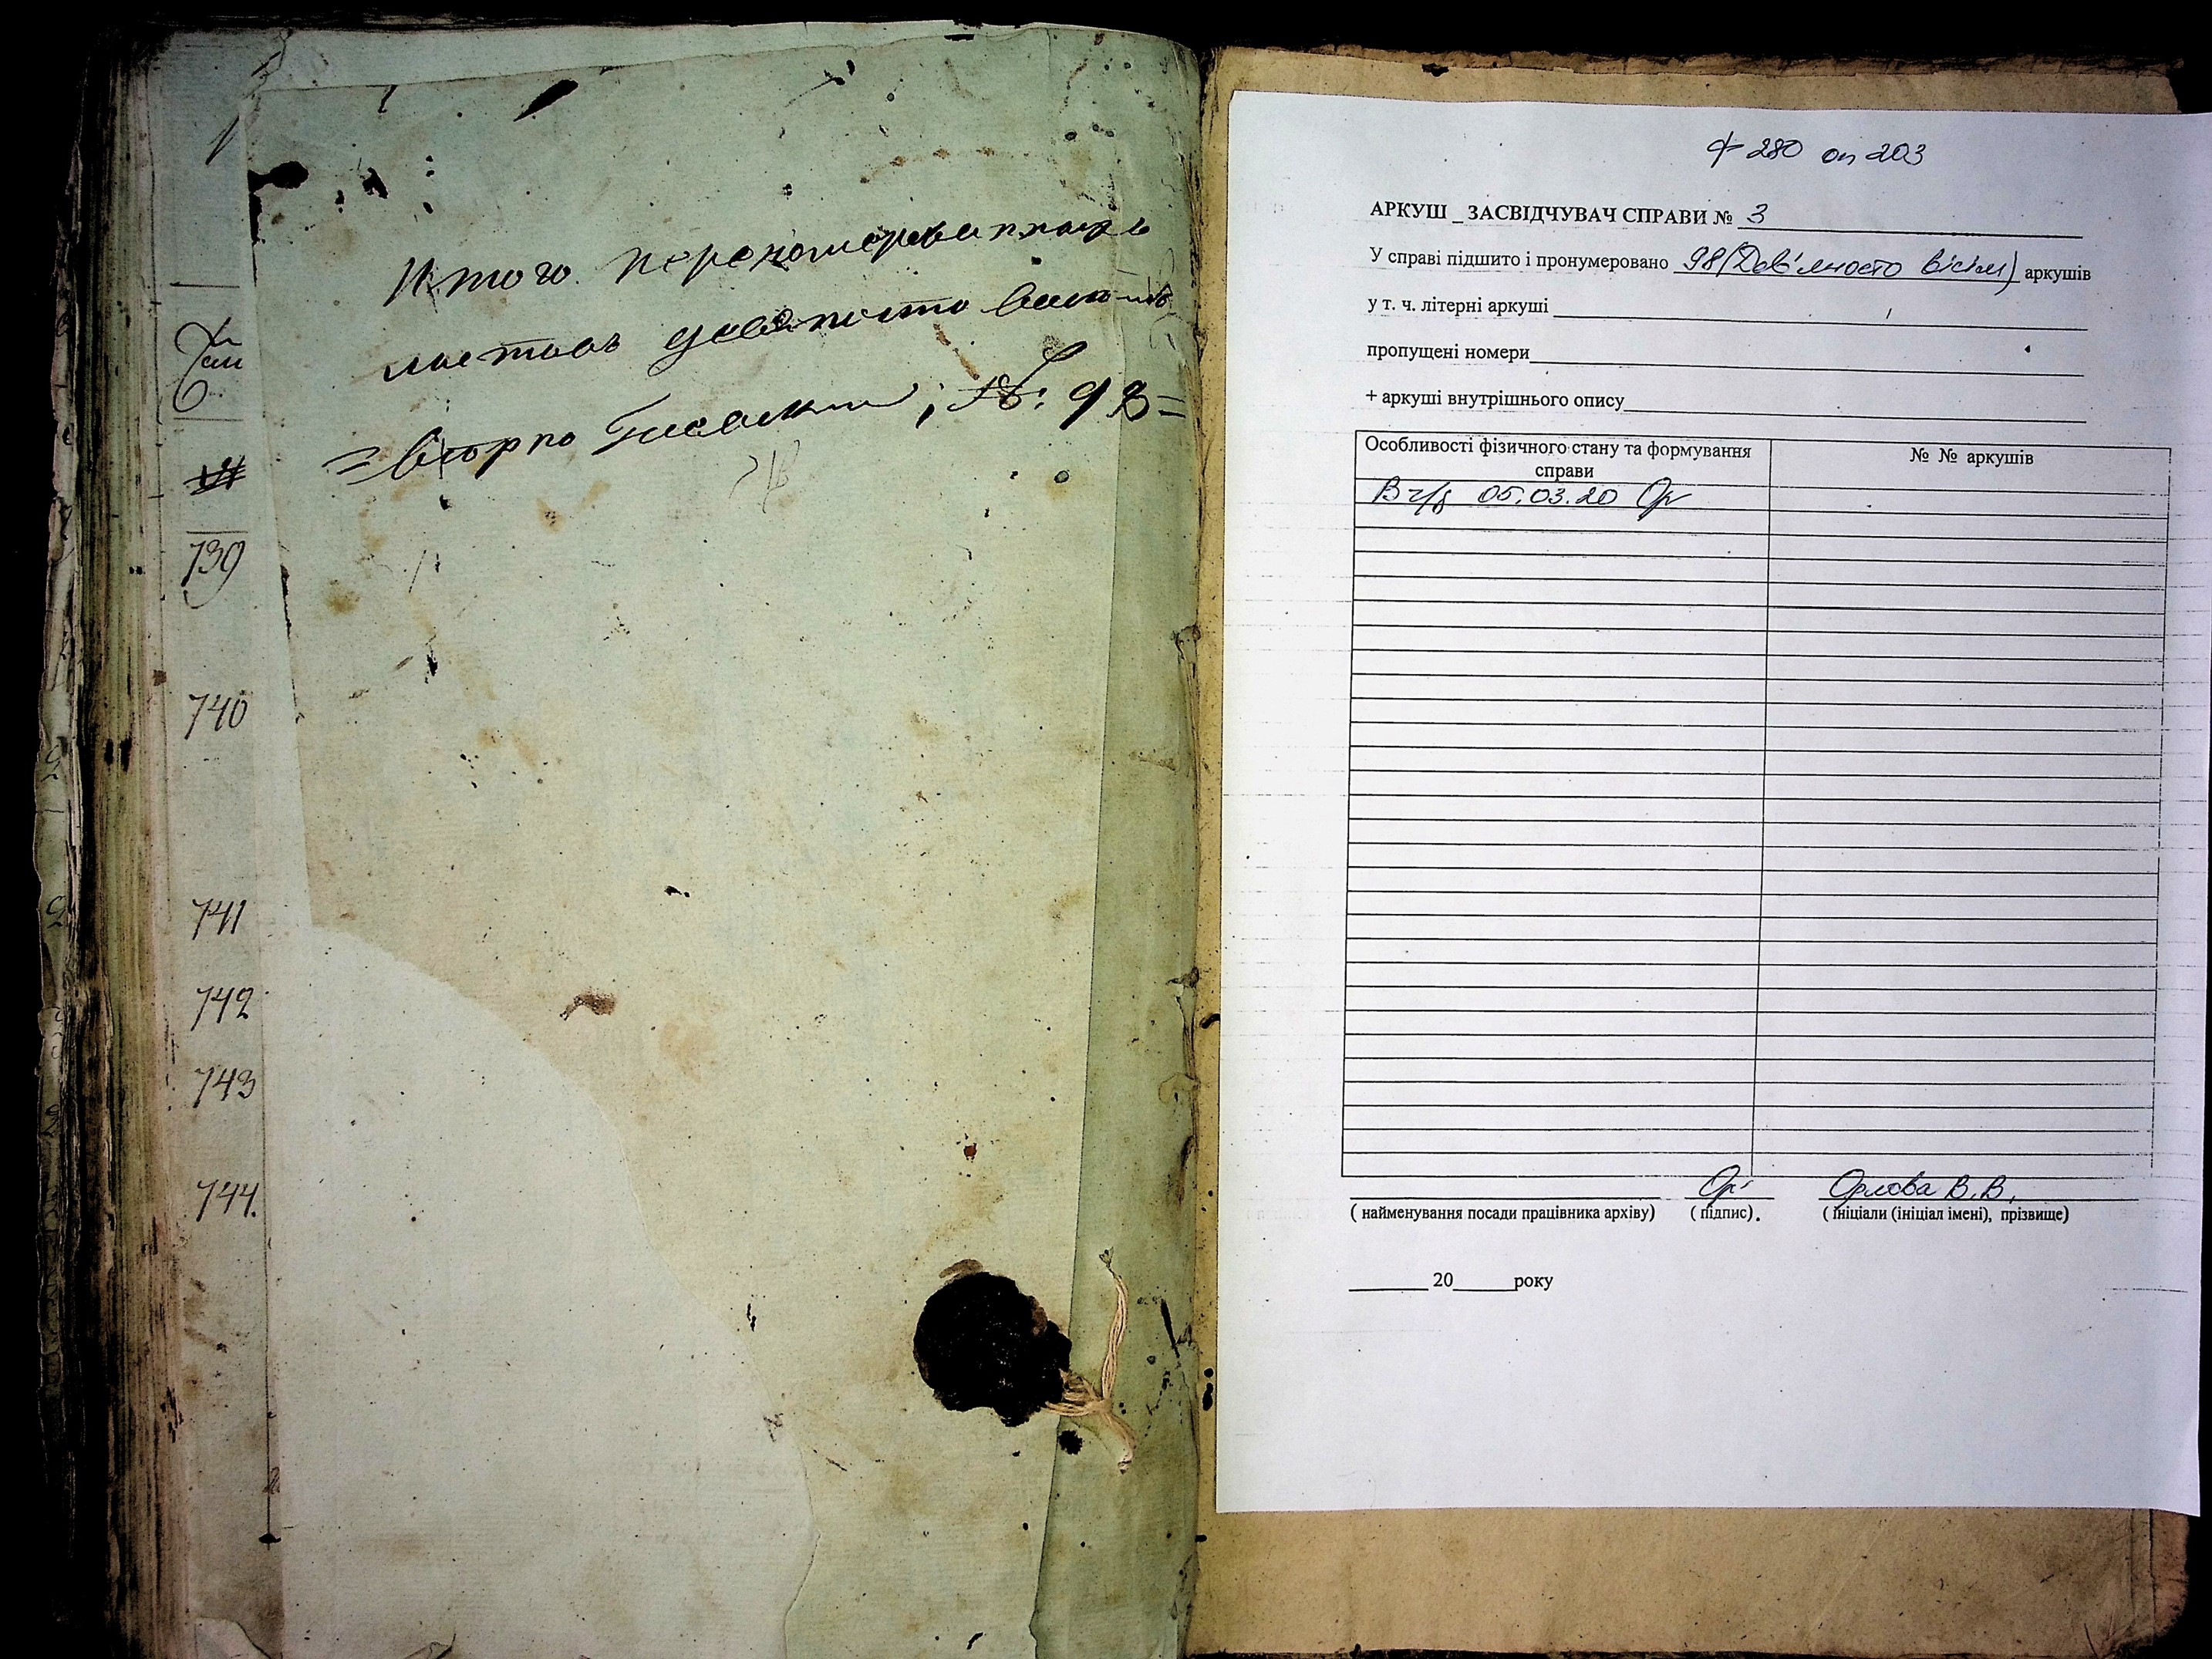 Итого перономерованныхъ
листовъ девяносто восемь
№: 98=
739
740
741
742
743
744.
ф 280 оп 203
АРКУШ _ ЗАСВІДЧУВАЧ СПРАВИ № 3
У справі підшито і пронумеровано 98 (Дев'яносто вісім) аркушів
у т. ч. літерні аркуші
пропущені номери
+ аркуші внутрішнього опису
Особливості фізичного стану та формування справи
№ № аркушів
В ч/з 05.03.20 Ор
Ор Орлова В.В.
( найменування посади працівника архіву) ( підпис). ( ініціали (ініціал імені), прізвище)
20 року